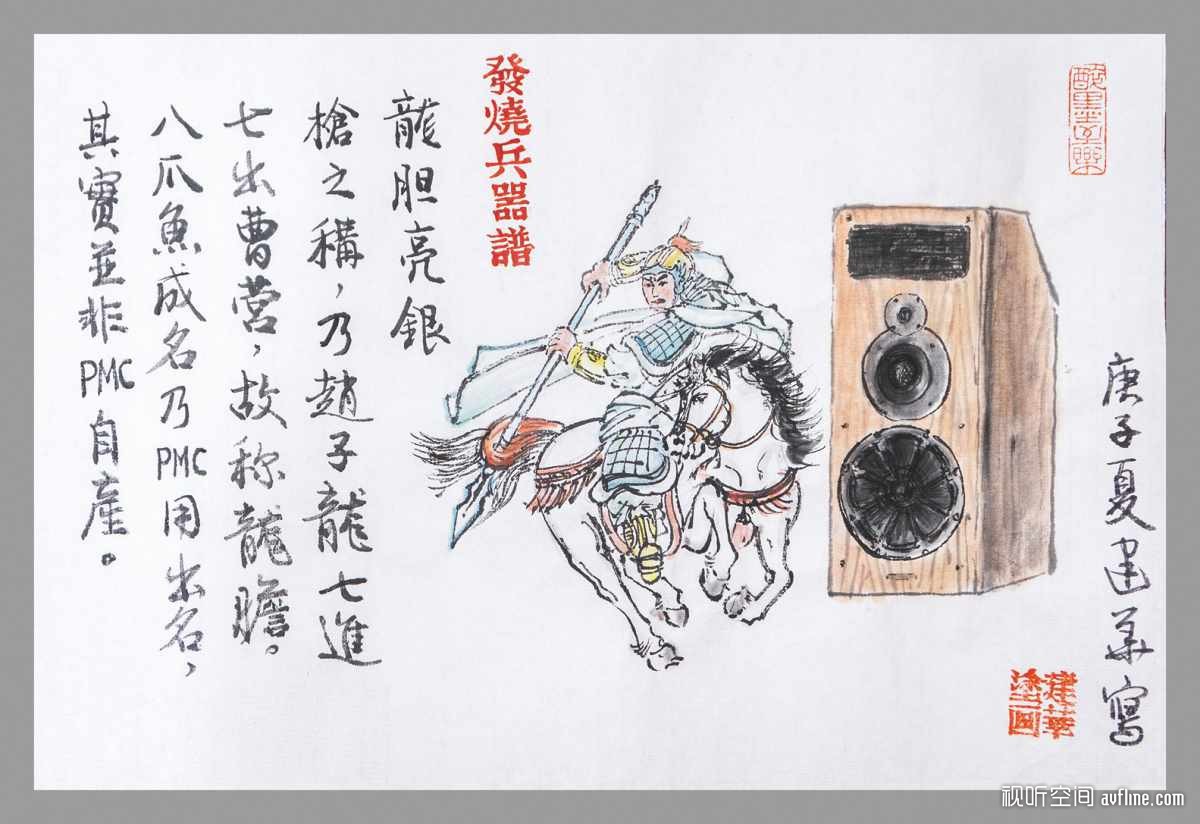 發燒兵器譜
龍胆亮銀
槍之稱，乃趙子龍七進
七出曹营，故称龍膽。
八爪魚成名乃PMC用出名，
其實並非PMC自產。
庚子夏建華寫
建華
塗画
视听空间 avfline.com